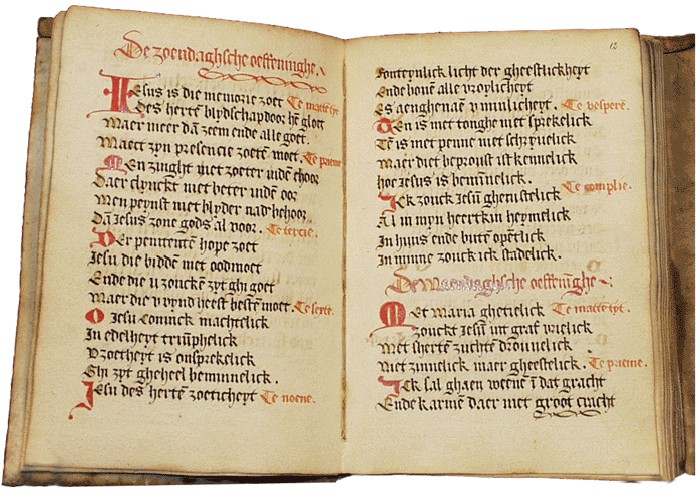 De zoendaghsche oeffeninghe.
Iesus is die memorie zoet Te mattē tyt
Des hertē blydschap door hē gloet
Maer meer dā zeem ende alle goet
Maect zyn presencie zoetē moet. Te prieme
Men zinght niet zoeter indē choor
Daer clynckt niet beter indē oor
Men peynst niet blyder nad' behoor
Dā Jesus zone gods al voor. Te tercie.
Der penitentē hope zoet
Jesu die biddē met oodmoet
Ende die u zouckē zyt ghy goet
Maer die v vynd heest bestē moet. Te sexte.
O Jesu Coninck machtelick
In edelheyt triūphelick
V zoetheyt is onsprekelick
Ghy zyt gheheel beminnelick.
Jesu des hertē zoeticheyt Te noene.
12
Fonteynlick licht der gheestlickheyt
Ende bouē alle vroylicheyt
Es aenghenaē v minlicheyt. Te vesperē.
Ten is met tonghe niet sprekelick
Tē is met penne niet schryuelick
Maer diet beproust ist kennelick
Hoe Jesus is beminelick.
Te complie.
Ick zouck Jesū ghenistelick
Al in myn heertkin heymelick
In huus ende butē opētlick
In minne zouck ick stadelick.
De Maendaghsche oeffenīghe
Met Maria ghetielick Te mattē tyt.
Zouckt Jesū int graf vrielick
Met shertē zuchtē drouuelick
Niet zinnelick maer gheestelick. Te prieme.
Ick sal ghaen weenē ī dat gracht
Ende karmē daer met groot cracht